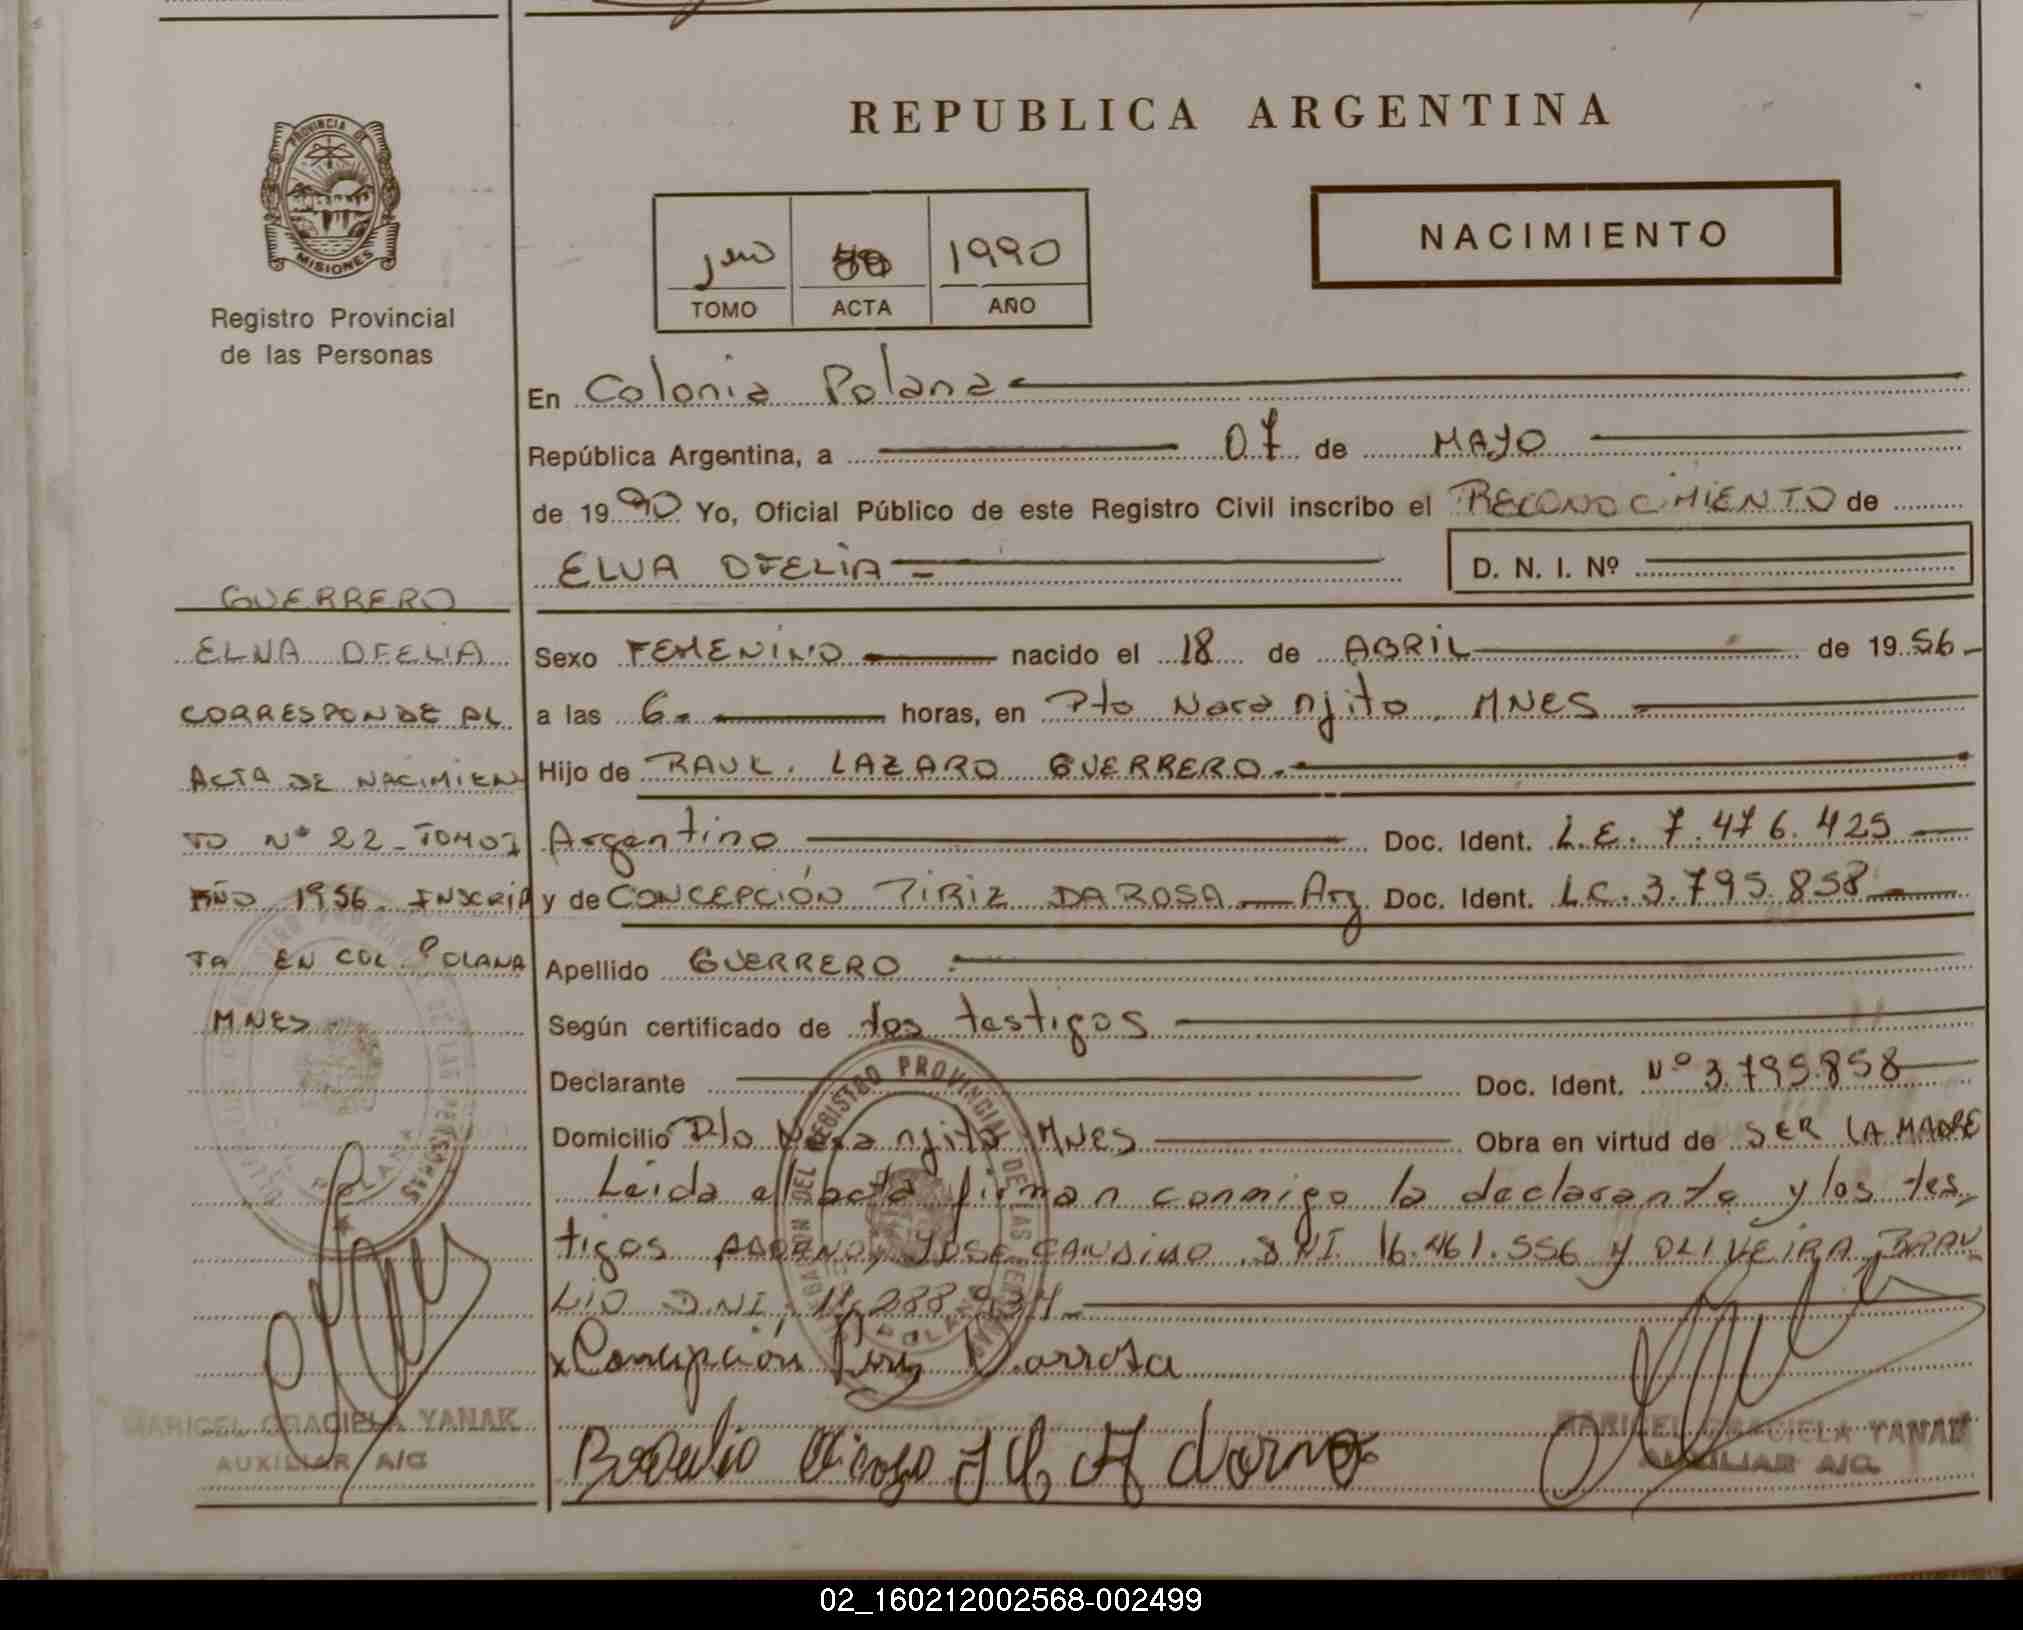 PROVINCIA DE
MISIONES
Registro Provincial
de las Personas
GUERRERO
ELNA OFELIA
CORRESPONDE AL
ACTA DE NACIMIEN
TO Nº 22 - TOMO 1
AÑO 1956 - INSCRIP
TA EN COL. POLANA
MNES.
MARICEL GRACIELA YANAK
AUXILIAR A/C
REPUBLICA ARGENTINA
NACIMIENTO
1990
TOMO ACTA AÑO
En Colonia Polana
República Argentina, a 07 de MAYO
de 1990 Yo, Oficial Público de este Registro Civil inscribo el RECONOCIMIENTO de
ELVA OFELIA D. N. I. Nº
Sexo FEMENINO nacido el 18 de ABRIL de 1956
a las 6. horas, en Pto Naranjito, MNES
Hijo de RAUL. LAZARO GUERRERO.
Argentino Doc. Ident. L.E. 7.476.425
y de CONCEPCIÓN PIRIZ DA ROSA Arg Doc. Ident. L.C. 3.795.858
Apellido GUERRERO
Según certificado de dos testigos
Declarante Doc. Ident. Nº 3.795.858
Domicilio Pto Naranjito MNES Obra en virtud de SER LA MADRE
Leida el acta firman conmigo la declarante y los tes
tigos ADORNO, JOSE CANDIDO DNI 16.461.556 y OLIVEIRA, BRAU
LIO D.N.I.
x Concepción Piriz Darrosa
MARICEL GRACIELA YANAK
AUXILIAR A/C.
02_160212002568-002499